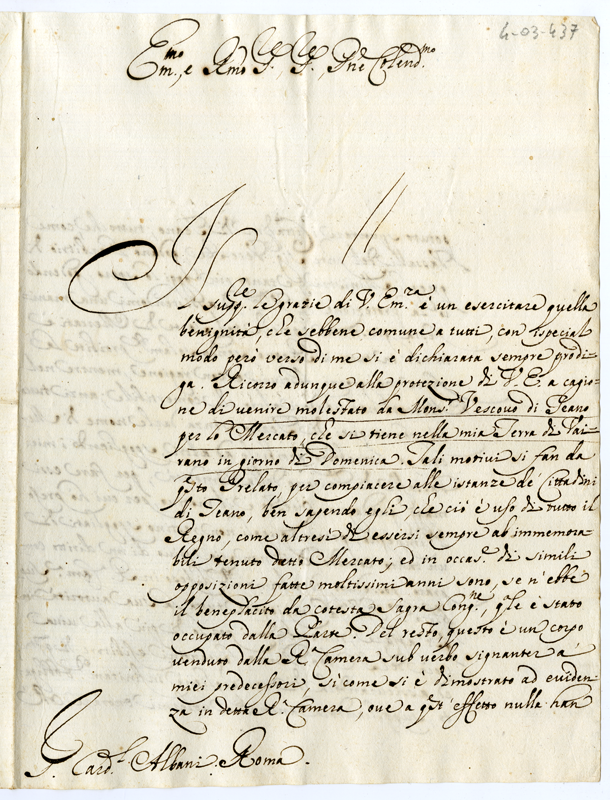 4-03-437
Em.mo, e Rmo S.re S.re Pne Colend.mo
Il supp.re le grazie di V. Em.za è un esercitare quella
benignità, che sebbene comune a tutti, con ispecial
modo però verso di me si è dichiarata sempre prodi-
ga. Ricorro adunque alla protezione di V. E. a cagio-
ne di venire molestato da Mons.r Vescovo di Teano
per lo Mercato, che si tiene nella mia Terra di Vai-
rano in giorno di Domenica. Tali motivi si fan da
q̃sto Prelato per compiacere alle istanze de' Cittadini
di Teano, ben sapendo egli che ciò è uso di tutto il
Regno, come altresì di essersi sempre ab immemora-
bili tenuto detto Mercato; ed in occas.e di simili
opposizioni fatte moltissimi anni sono, se n'ebbe
il beneplacito da cotesta Sagra Cong.ne, q̃le è stato
occupato dalla Parte. Del resto, questo è un corpo
venduto dalla R.a Camera sub verbo signanter a'
miei predecessori, sì come si è dimostrato ad eviden-
za in detta R.a Camera, ove a q̃st'effetto nulla han
S.r Card.l Albani. Roma.